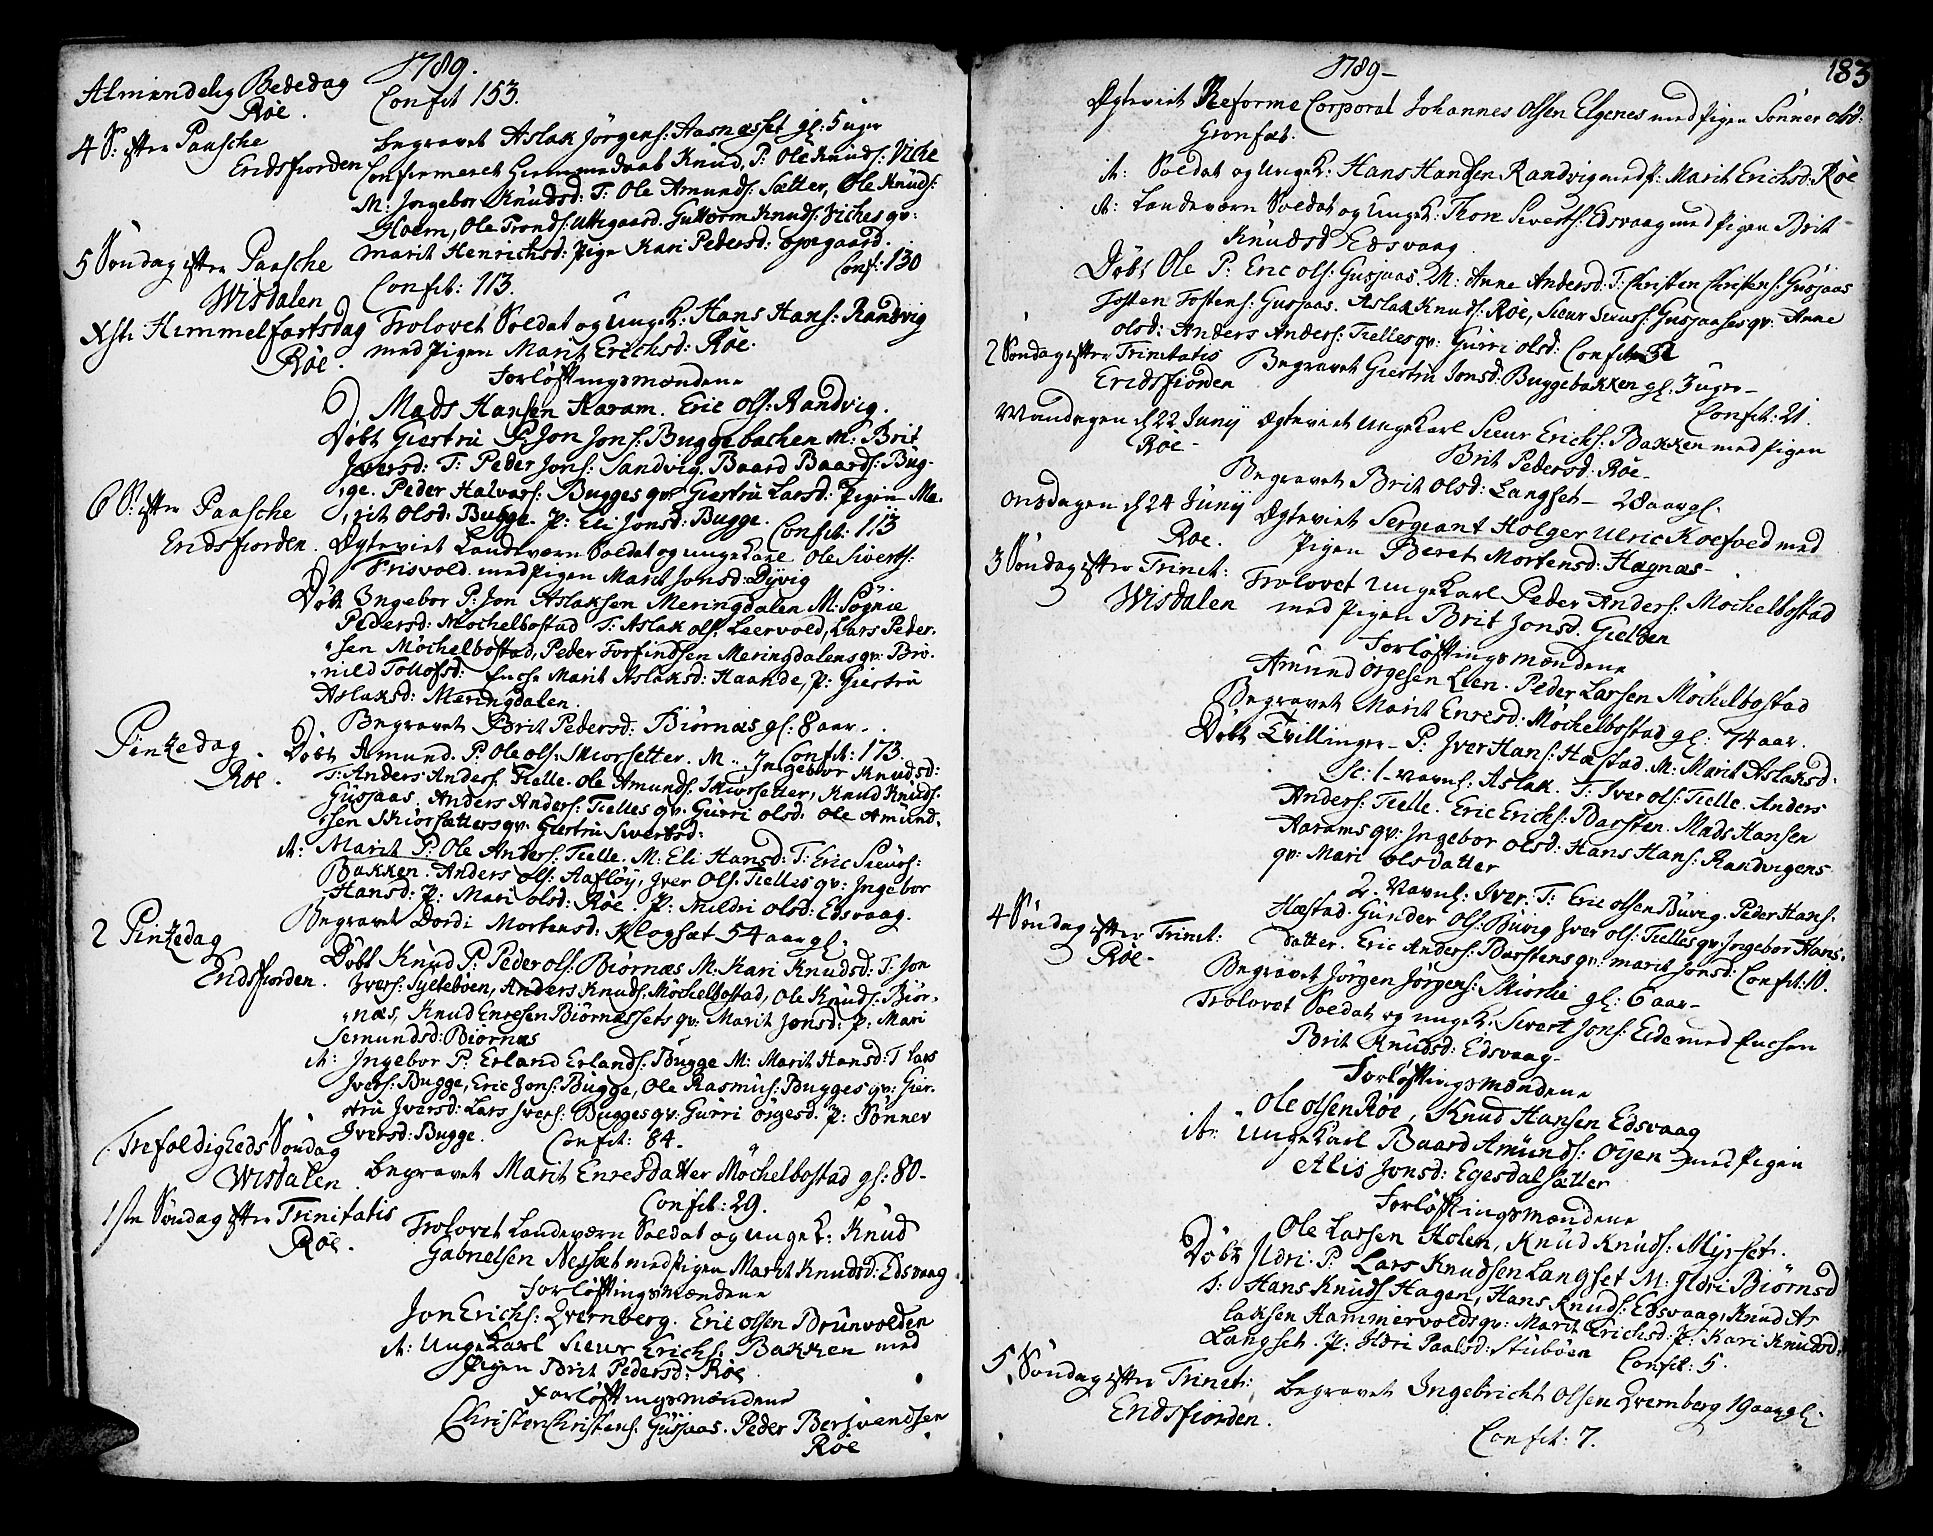 1789.
Almindelig Bededag
Røe.
Confit 153.
4 S: efter Paasche
Eridsfiorden
Begravet Aslak Jörgens: Aasnæsset gl: 5 uger
Confirmeret Hiemmedaab Knud, P: Ole Knuds: Viche
M: Ingebor Knudsd: T: Ole Amunds: Sætter, Ole Knuds:
Holm, Ole Tronds: Utkgaard. Guttorm Knuds: Viches qv:
Marit Henrichsd: Pige Kari Pedersd: opegaard.
Conf: 130
5 Søndag efter Paasche
Wisdalen
Confit: 113.
Xsti Himmelfartsdag
Røe.
Trolovet Soldat og Unge K: Hans Hans: Randvig
med Pigen Marit Erichsd: Røe.
Forløftningsmændene
Mads Hansen Haram. Eric Ols: Randvig.
Døbt Giertru P: Jon Jons: Buggebachen M: Brit
Iversd: T: Peder Jons: Sandvig. Baard Baards: Bug-
ge. Peder Halvors: Bugges qv: Giertru Larsd: Pigen Ma-
rit Olsd: Bugge. P: Eli Jonsd: Bugge.
Confit: 113
6 S: efter Paasche
Eridsfiorden.
Ægteviet Landeværn Soldat og unge Karl Ole Siverts:
Frisvold med Pigen Marit Jonsd: Dyvig
Døbt Ingebor P: Jon Aslaksen Meringdalen M: Signie
Pedersd: Möchelbostad T: Aslak Ols: Leervold, Lars Peder-
sen Möchelbostad, Peder Torfindsen Meringdalens qv: Bro-
nild Tollofsd: Enche Marit Aslaksd: Haahde, P: Giertru
Aslaksd: Meringdalen.
Begravet Brit Pedersd: Biørnæs gl: 8 aar.
Confit: 173
Pintzedag
Røe.
Døbt Amund. P: Ole Ols: Skiorsetter. M: Ingebor Knudsd:
T: Anders Anders: Tielle. Ole Amunds: Skiorsetter, Knud Knuds:
Gusjaas, Anders Anders: Tielles qv: Gurri Olsd: Ole Amund-
sen Skiorsætters qv: Giertru Sivertsd:
it: Marit P: Ole Anders: Tielle. M: Eli Hansd: T: Eric Sieurs:
Bakken. Anders Ols: Aafløy, Iver Ols: Tielles qv: Ingebor
Hansd: P: Mari Olsd: Røe. P: Mildri Olsd: Edsvaag.
Begravet Dordi Mortensd: Klogsæt 54 aar gl:
2 Pintzedag
Eridsfiorden.
Døbt Knud P: Peder Ols: Biørnæs M: Kari Knudsd: T: Jon
Ivers: Syltebøen, Anders Knuds: Möchelbostad, Ole Knuds: Biør-
næs, Knud Enresen Biørnæssets qv: Marit Jonsd: P: Mari
Semundsd: Biørnæs
it: Ingebor P: Erland Erlands: Bugge M: Marit Hansd: T: Lars
Ivers: Bugge, Eric Jons: Bugge, Ole Rasmus: Bugges qv: Gier-
tru Iversd: Lars Ivers: Bugges qv: Gurri Örgesd. P: Sønnev
Iversd: Bugge.
Confit: 84.
Trefoldigheds Søndag
Wisdalen.
Begravet Marit Enresdatter Möchelbostad gl: 80-
Confit: 29.
1ste Søndag efter Trinitatis
Røe.
Trolovet Landeværn Soldat og unge K: Knud
Gabrielsen Nessæt med Pigen Marit Knudsd: Edsvaag
Forløftningsmændene
Jon Erichs: Qvernberg. Eric Olsen Brunvolden
it: Unge Karl Sieur Erichs: Bakken med
Pigen Brit Pedersd: Røe
Forløftningsmændene
Christen Christens: Gusjaas. Peder Bersvendsen
Røe
1789-
183
Ægteviet Reforme Corporal Johannes Olsen Elgenes med Pigen Sønnev Olsd:
Gronfæt.
it: Soldat og Unge K: Hans Hansen Randvig med P: Marit Erichsd: Røe
it: Landeværn Soldat og Unge K: Thore Siverts: Edsvaag med Pigen Brit
Knudsd Edsvaag
Døbt Ole P: Eric Ols: Gusjaas. M: Anne Andersd: T: Christen Christens: Gusjaas
Josten Jostens: Gusjaas. Aslak Knuds: Røe, Sieur Sieurs: Gusjaases qv: Anne
Olsd: Anders Anders: Tielles qv: Gurri Olsd: Confit: 31
2 Søndag efter Trinitatis
Eridsfiorden
Begravet Giertru Jonsd: Buggebakken gl: 3 uger-
Confit: 21.
Mandagen d 22 Junij
Røe-
Ægteviet Unge Karl Sieur Erichs: Bakken med Pigen
Brit Pedersd: Røe-
Begravet Brit Olsd: Langset- 28 aar gl.
Onsdagen d 24 Junij
Røe.
Ægteviet Sergeant Holger Ulric Koefoed med
Pigen Beret Mortensd: Hagnæs-
3 Søndag efter Trinit:
Wisdalen
Trolovet Unge Karl Peder Anders: Möchelbostad
med Pigen Brit Jonsd. Gielden
Forløftningsmændene
Amund Örgesen Lien. Peder Larsen Möchelbostad
Begravet Marit Enresd: Möchelbostad gl: 74 aar.
Døbt Tvillinger- P: Iver Hans: Hæstad. M: Marit Aslaksd:
sc: 1- navnl: Aslak. T: Iver Ols: Tielle. Anders
Anders: Tielle. Eric Erichs: Barsten. Mads Hansen
Harams qv: Ingebor Olsd: Hans Hans: Randvigens
qv: Mari Olsdatter
2. Navnl: Iver. T: Eric Olsen Buvig. Peder Hans:
Hæstad. Gunder Ols: Buvig Iver Ols: Tielles qv: Ingebor Hans-
datter. Eric Anders: Barstens qv: Marit Jonsd: Confit: 10.
4 Søndag efter Trinit:
Røe-
Begravet Jörgen Jörgens: Skiorlie gl: 6 aar-
Trolovet Soldat og unge K: Sivert Jons: Eide med Enchen
Brit Knudsd: Edsvaag-
Forløftningsmændene
Ole Olsen Røe, Knud Hansen Edsvaag
it: Unge Karl Baard Amunds: Öyen med Pigen
Alis Jonsd: Egesdalsætter
Forløftningsmændene
Ole Larsen Holen, Knud Knuds: Myrset.
Døbt Ildri. P: Lars Knudsen Langset M: Ildri Biørnsd
T: Hans Knuds Hagen, Hans Knuds: Edsvaag, Knud As
laksen Hammervolds qv: Marit Erichsd: P: Kari Knudsd:
Langset. P: Ildri Paalsd: Stubøen
Confit: 5.
5 Søndag efter Trinit:
Eridsfiorden.
Begravet Ingebricht Olsen Qvernberg 19 aar gl:
Confit: 7.